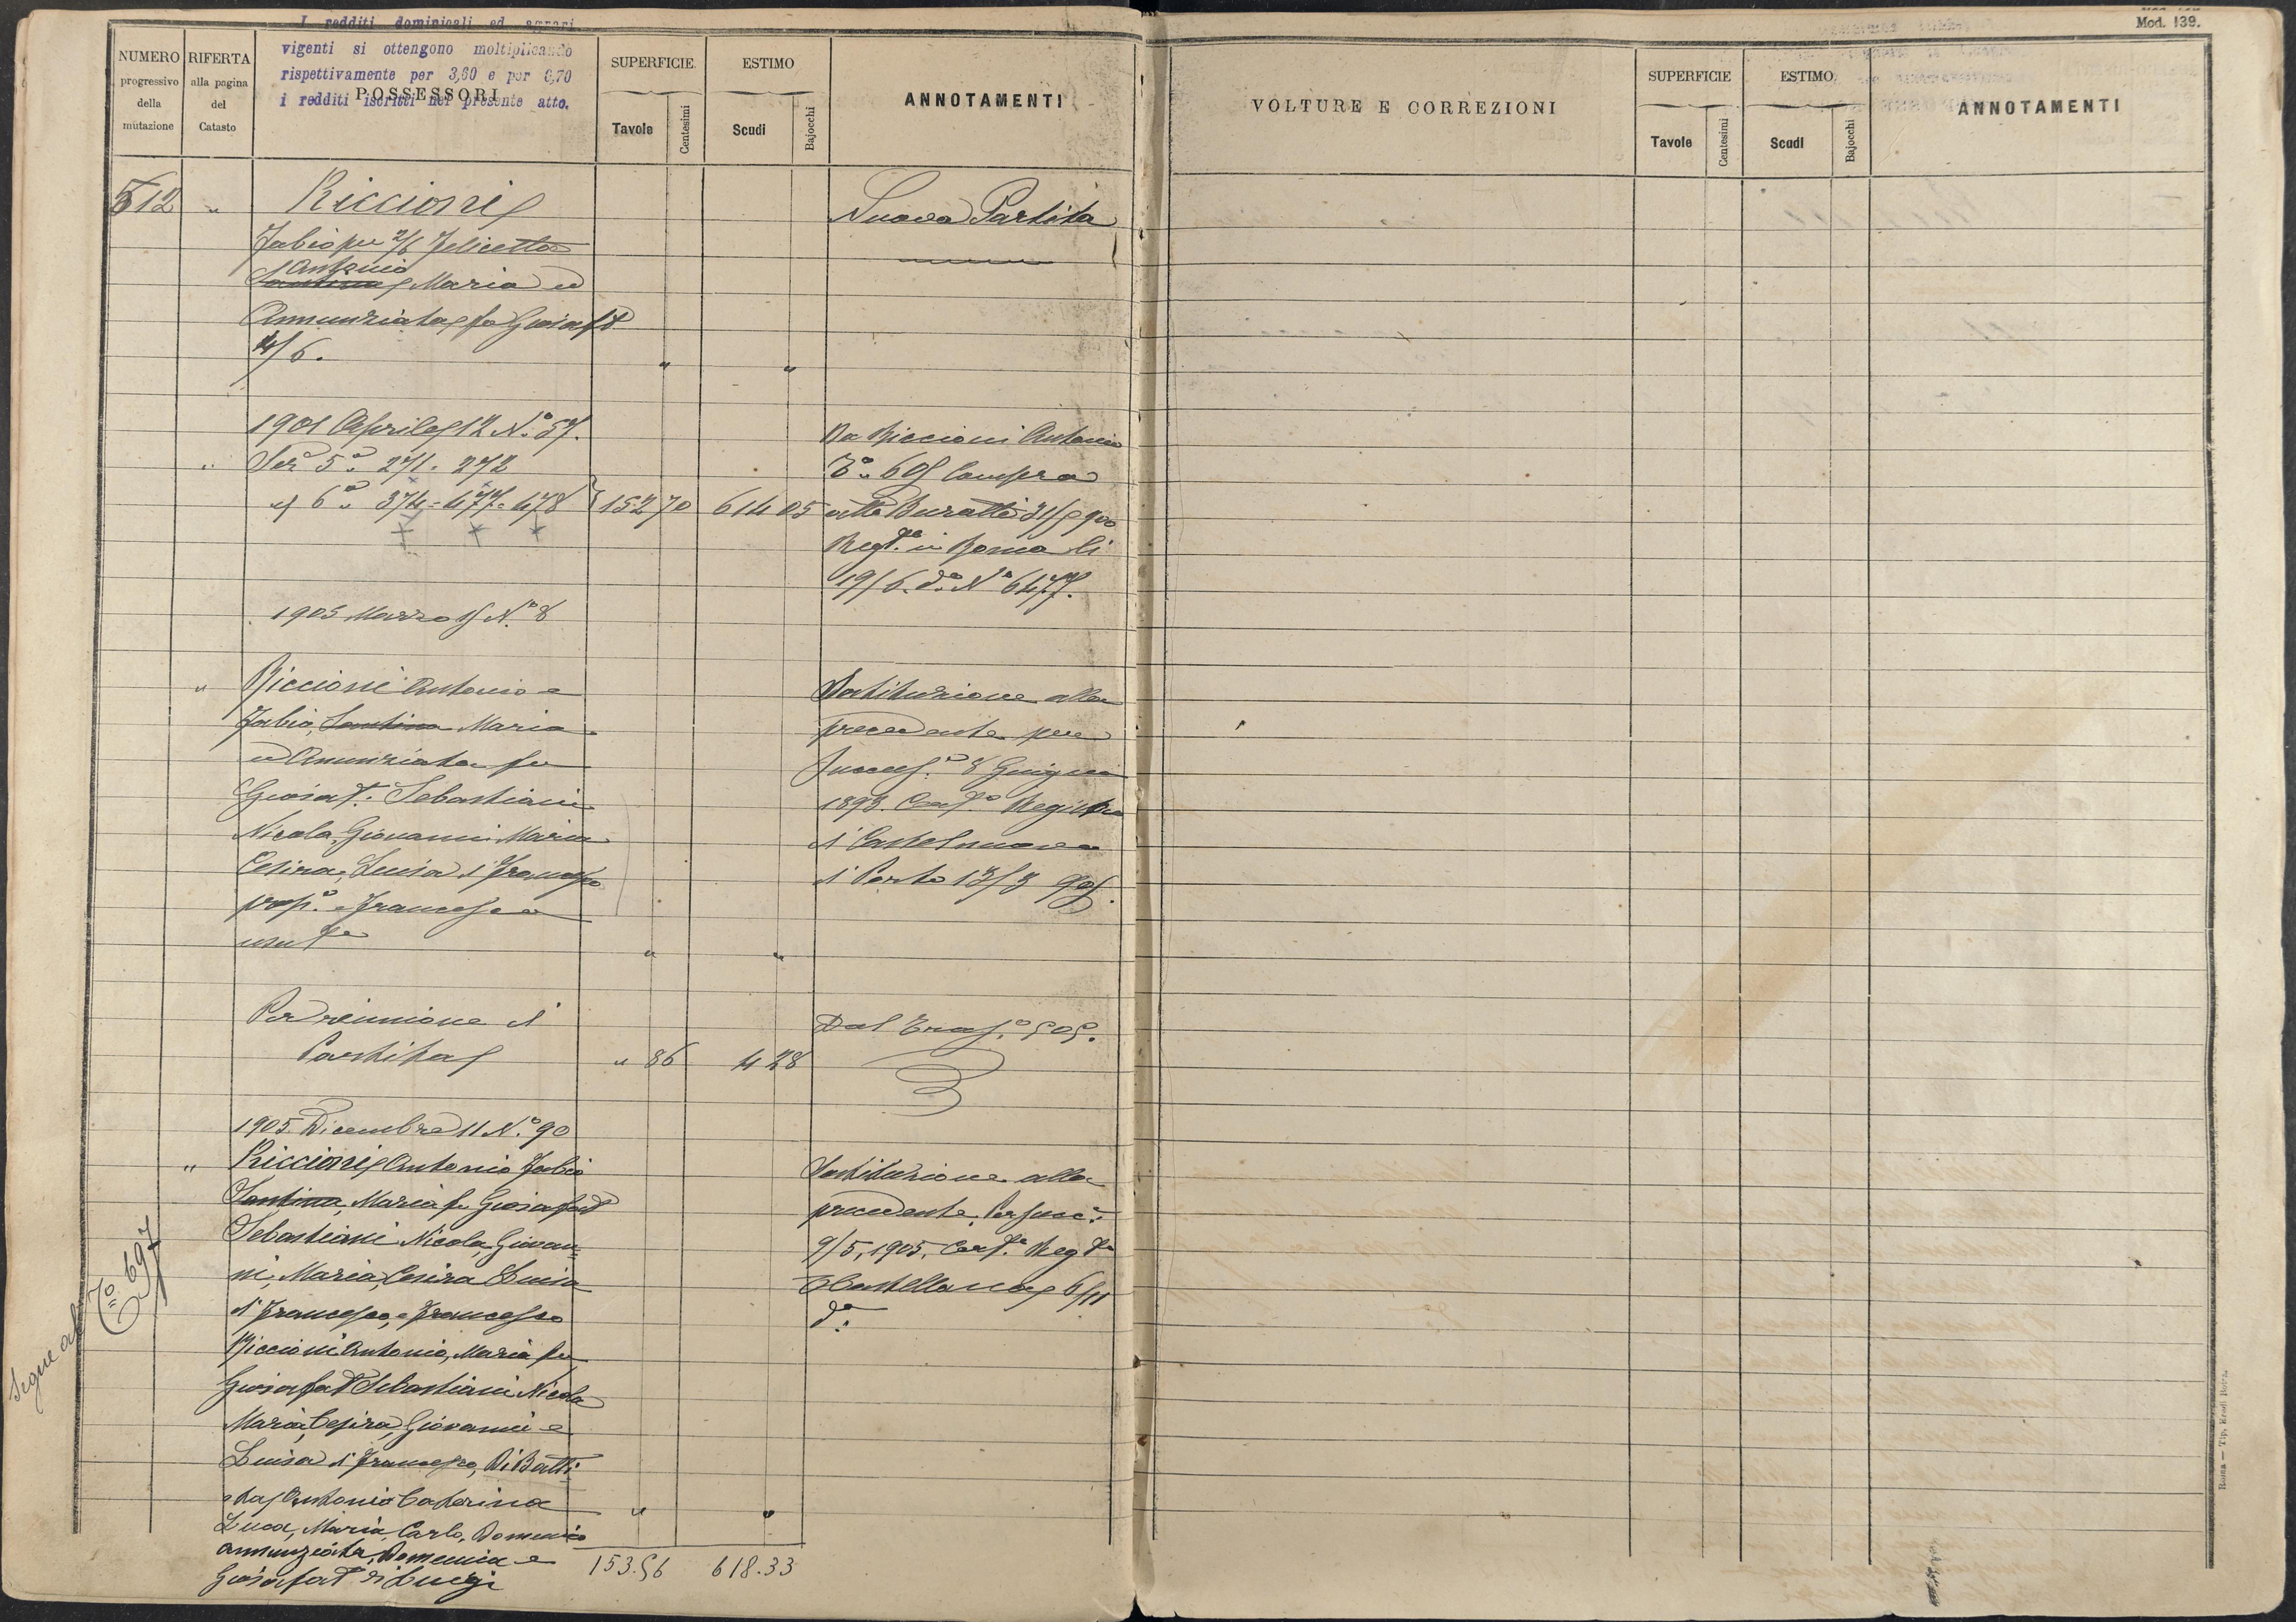 I redditi dominicali ed agrari
vigenti si ottengono moltiplicando
rispettivamente per 3,60 e per 6,70
i redditi iscritti nel presente atto.
NUMERO progressivo della mutazione
RIFERTA alla pagina del Catasto
POSSESSORI
SUPERFICIE
Tavole
Centesimi
ESTIMO
Scudi
Bajocchi
ANNOTAMENTI
512 " Riccioni Nuova Partita
Fabio per 2/6 Felicetta
Antonio
Santina Maria ed
Annunziata fu Giosafat
4/6. " "
1901 Aprile 12 N.º 57. Da Riccioni Antonio
" Sez 5ª 271. 272 Compra
6ª 374 = 477 = 478 152 70 614 05 atto Buratti
Regta in Roma li
19/6 dº Nº 6477.
1905 Marzo N.º 8
" Riccioni Antonio e Sostituzione alla
Fabio, Santina Maria precedente per
ed Annunziata fu Giugno
Giosaft. Sebastiani 1898. Registro
Nicola, Giovanni Maria di Castelnuovo
Cesira, Luisa di Francesco di Porto 13/3
prop. e Francesco
usufº " "
Per riunione di Dal Trasº 505.
Partita " 86 4 28
1905 Dicembre 11 N.º 90
" Riccioni Antonio Fabio Sostituzione alla
Santina, Maria fu Giosafat precedente Per succ.
Sebastiani Nicola, Giovan= 9/5, 1905, Regta
ni, Maria, Cesira Luisa 6/11
di Francesco, e Francesco dº
Riccioni Antonio, Maria fu
Giosafat Sebastiani Nicola
Maria, Cesira, Giovanni e
Luisa di Francesco, Di Batti
sta Antonio Caterina " "
Luca, Maria, Carlo, Domenico
Annunziata, Domenica e
Giosafat di Luigi 153.56 618.33
Segue al Tº 697
Mod. 139.
VOLTURE E CORREZIONI
SUPERFICIE
Tavole
Centesimi
ESTIMO
Scudi
Bajocchi
ANNOTAMENTI
Roma — Tip. Eredi Botta.